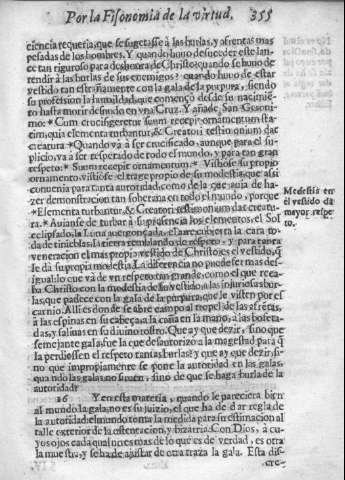 Por la Fisonomia de la virtud. 355
ciencia requeria, que se sugetasse à las burlas, y afrentas mas
pesadas de los hombres. Y quando huuo de suceder este lan-
ce tan riguroso para deshonra de Christo: quando se huuo de
rendir à las burlas de sus enemigos? quando huuo de estar
vestido tan estrañamente con la gala de la purpura, siendo
su profession la humildad, que començò desde su nacimie-
to hasta morir desnudo en vna Cruz. Y añade San Geroni-
mo: * Cum crucifigeretur suum recepit ornamentum sta-
tim, quia elementa turbantur, & Creatori testimonium dat
creatura. * Quando và à ser crucificado, aunque para el su-
plicio, va à ser respetado de todo el mundo, y para tan gran
respeto. * Suum recepit ornamentum. * Vistiose su propio
ornamento, vistiose el trage propio de su modestia, que assi
conuenia para tanta autoridad, como de la que auia de ha-
zer demonstracion tan soberana en todo el mundo, porque
* Elementa turbantur, & Creatori testimonium dat creatu-
ra. * Auianse de turbar à su presencia los elementos, el Sol
eclipsado, la Luna auergonçada, el aire cubierta la cara to-
da de tinieblas, la tierra temblando de respeto, y para tanta
veneracion el mas propio vestido de Christo es el vestido, q
le dà su propia modestia. La diferencia no puede ser mas des-
igual: lo que và de vn respeto tan grande como el que recea-
ba Christo con la modestia de su vestido, a las injuriosas bur-
las, que padece con la gala de la purpura, que le visten por es-
carnio. Alli es donde se abre campo al tropel de las afrētas,
à las espinas en su cabeça, à la caña en la mano, à las bofeta-
das, y saliuas en su diuino rostro. Que ay que dezir, sino que
semejante gala fue la que desautorizò a la magestad para q̃
la perdiessen el respeto tantas burlas? y que ay que dezir, si-
no que impropiamente se pone la autoridad en las galas,
quando las galas no siruen, sino de que se haga burla de la
autoridad?
26 Y en esta materia, quando le pareciera bien
al mundo la gala, no es su juizio, el que ha de dar regla de
la autoridad: el mundo toma la medida para su estimacion al
talle exterior de la ostentacion, y bizarria. Con Dios, à cu-
yos ojos cada qual no es mas de lo que es de verdad, es otra
la muestra, y se ha de ajustar de otra traza la gala. Esta dis-
cre-
Modestia en
el vestido dà
mayor respe-
to.